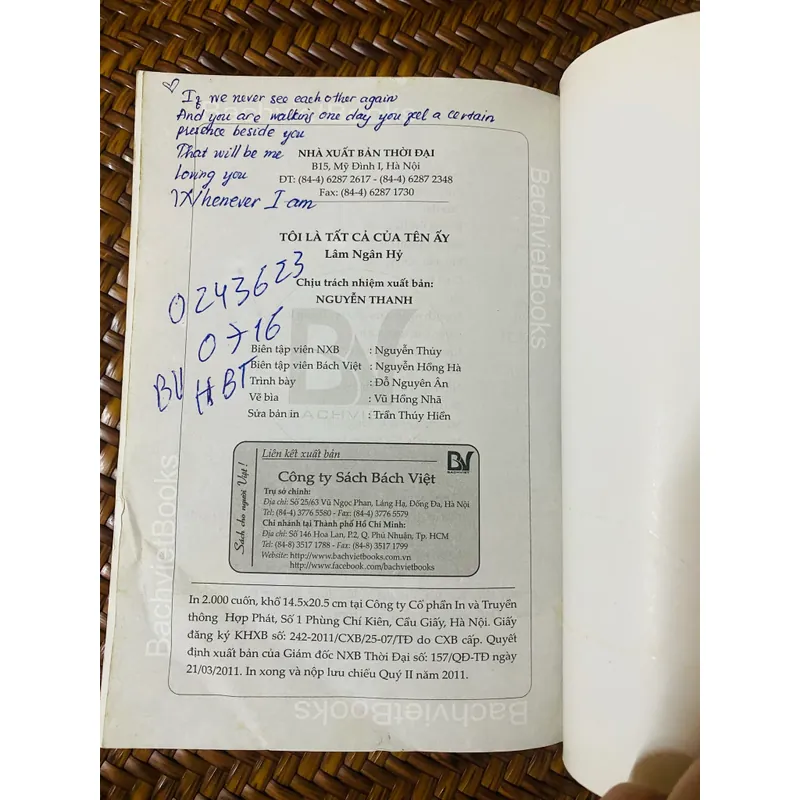 If we never see each other again
And you are walking one day you feel a certain
presence beside you
That will be me
loving you
Whenever I am
NHÀ XUẤT BẢN THỜI ĐẠI
B15, Mỹ Đình I, Hà Nội
ĐT: (84-4) 6287 2617 - (84-4) 6287 2348
Fax: (84-4) 6287 1730
TÔI LÀ TẤT CẢ CỦA TÊN ẤY
Lâm Ngân Hỷ
Chịu trách nhiệm xuất bản:
NGUYỄN THANH
0243623
0716
BV HBT
Biên tập viên NXB : Nguyễn Thủy
Biên tập viên Bách Việt : Nguyễn Hồng Hà
Trình bày : Đỗ Nguyên Ân
Vẽ bìa : Vũ Hồng Nhã
Sửa bản in : Trần Thúy Hiển
BV
BACHVI
Liên kết xuất bản
BV
BACHVIET
Sách cho người Việt !
Công ty Sách Bách Việt
Trụ sở chính:
Địa chỉ: Số 25/63 Vũ Ngọc Phan, Láng Hạ, Đống Đa, Hà Nội
Tel: (84-4) 3776 5580 - Fax: (84-4) 3776 5579
Chi nhánh tại Thành phố Hồ Chí Minh:
Địa chỉ: Số 146 Hoa Lan, P.2, Q. Phú Nhuận, Tp. HCM
Tel: (84-8) 3517 1788 - Fax: (84-8) 3517 1799
Website: http://www.bachvietbooks.com.vn
http://www.facebook.com/bachvietbooks
In 2.000 cuốn, khổ 14.5x20.5 cm tại Công ty Cổ phần In và Truyền
thông Hợp Phát, Số 1 Phùng Chí Kiên, Cầu Giấy, Hà Nội. Giấy
đăng ký KHXB số: 242-2011/CXB/25-07/TĐ do CXB cấp. Quyết
định xuất bản của Giám đốc NXB Thời Đại số: 157/QĐ-TĐ ngày
21/03/2011. In xong và nộp lưu chiểu Quý II năm 2011.
BachvietBooks
BachvietBooks
BachvietBooks
BachvietBooks